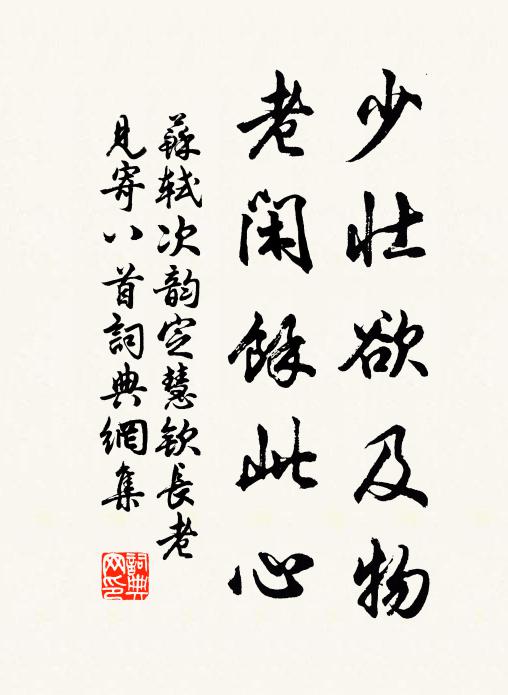 少壯欲及物
老閑餘此心
蘇軾次韵定慧欽長老
見寄八首詞典網集
詞典
网印